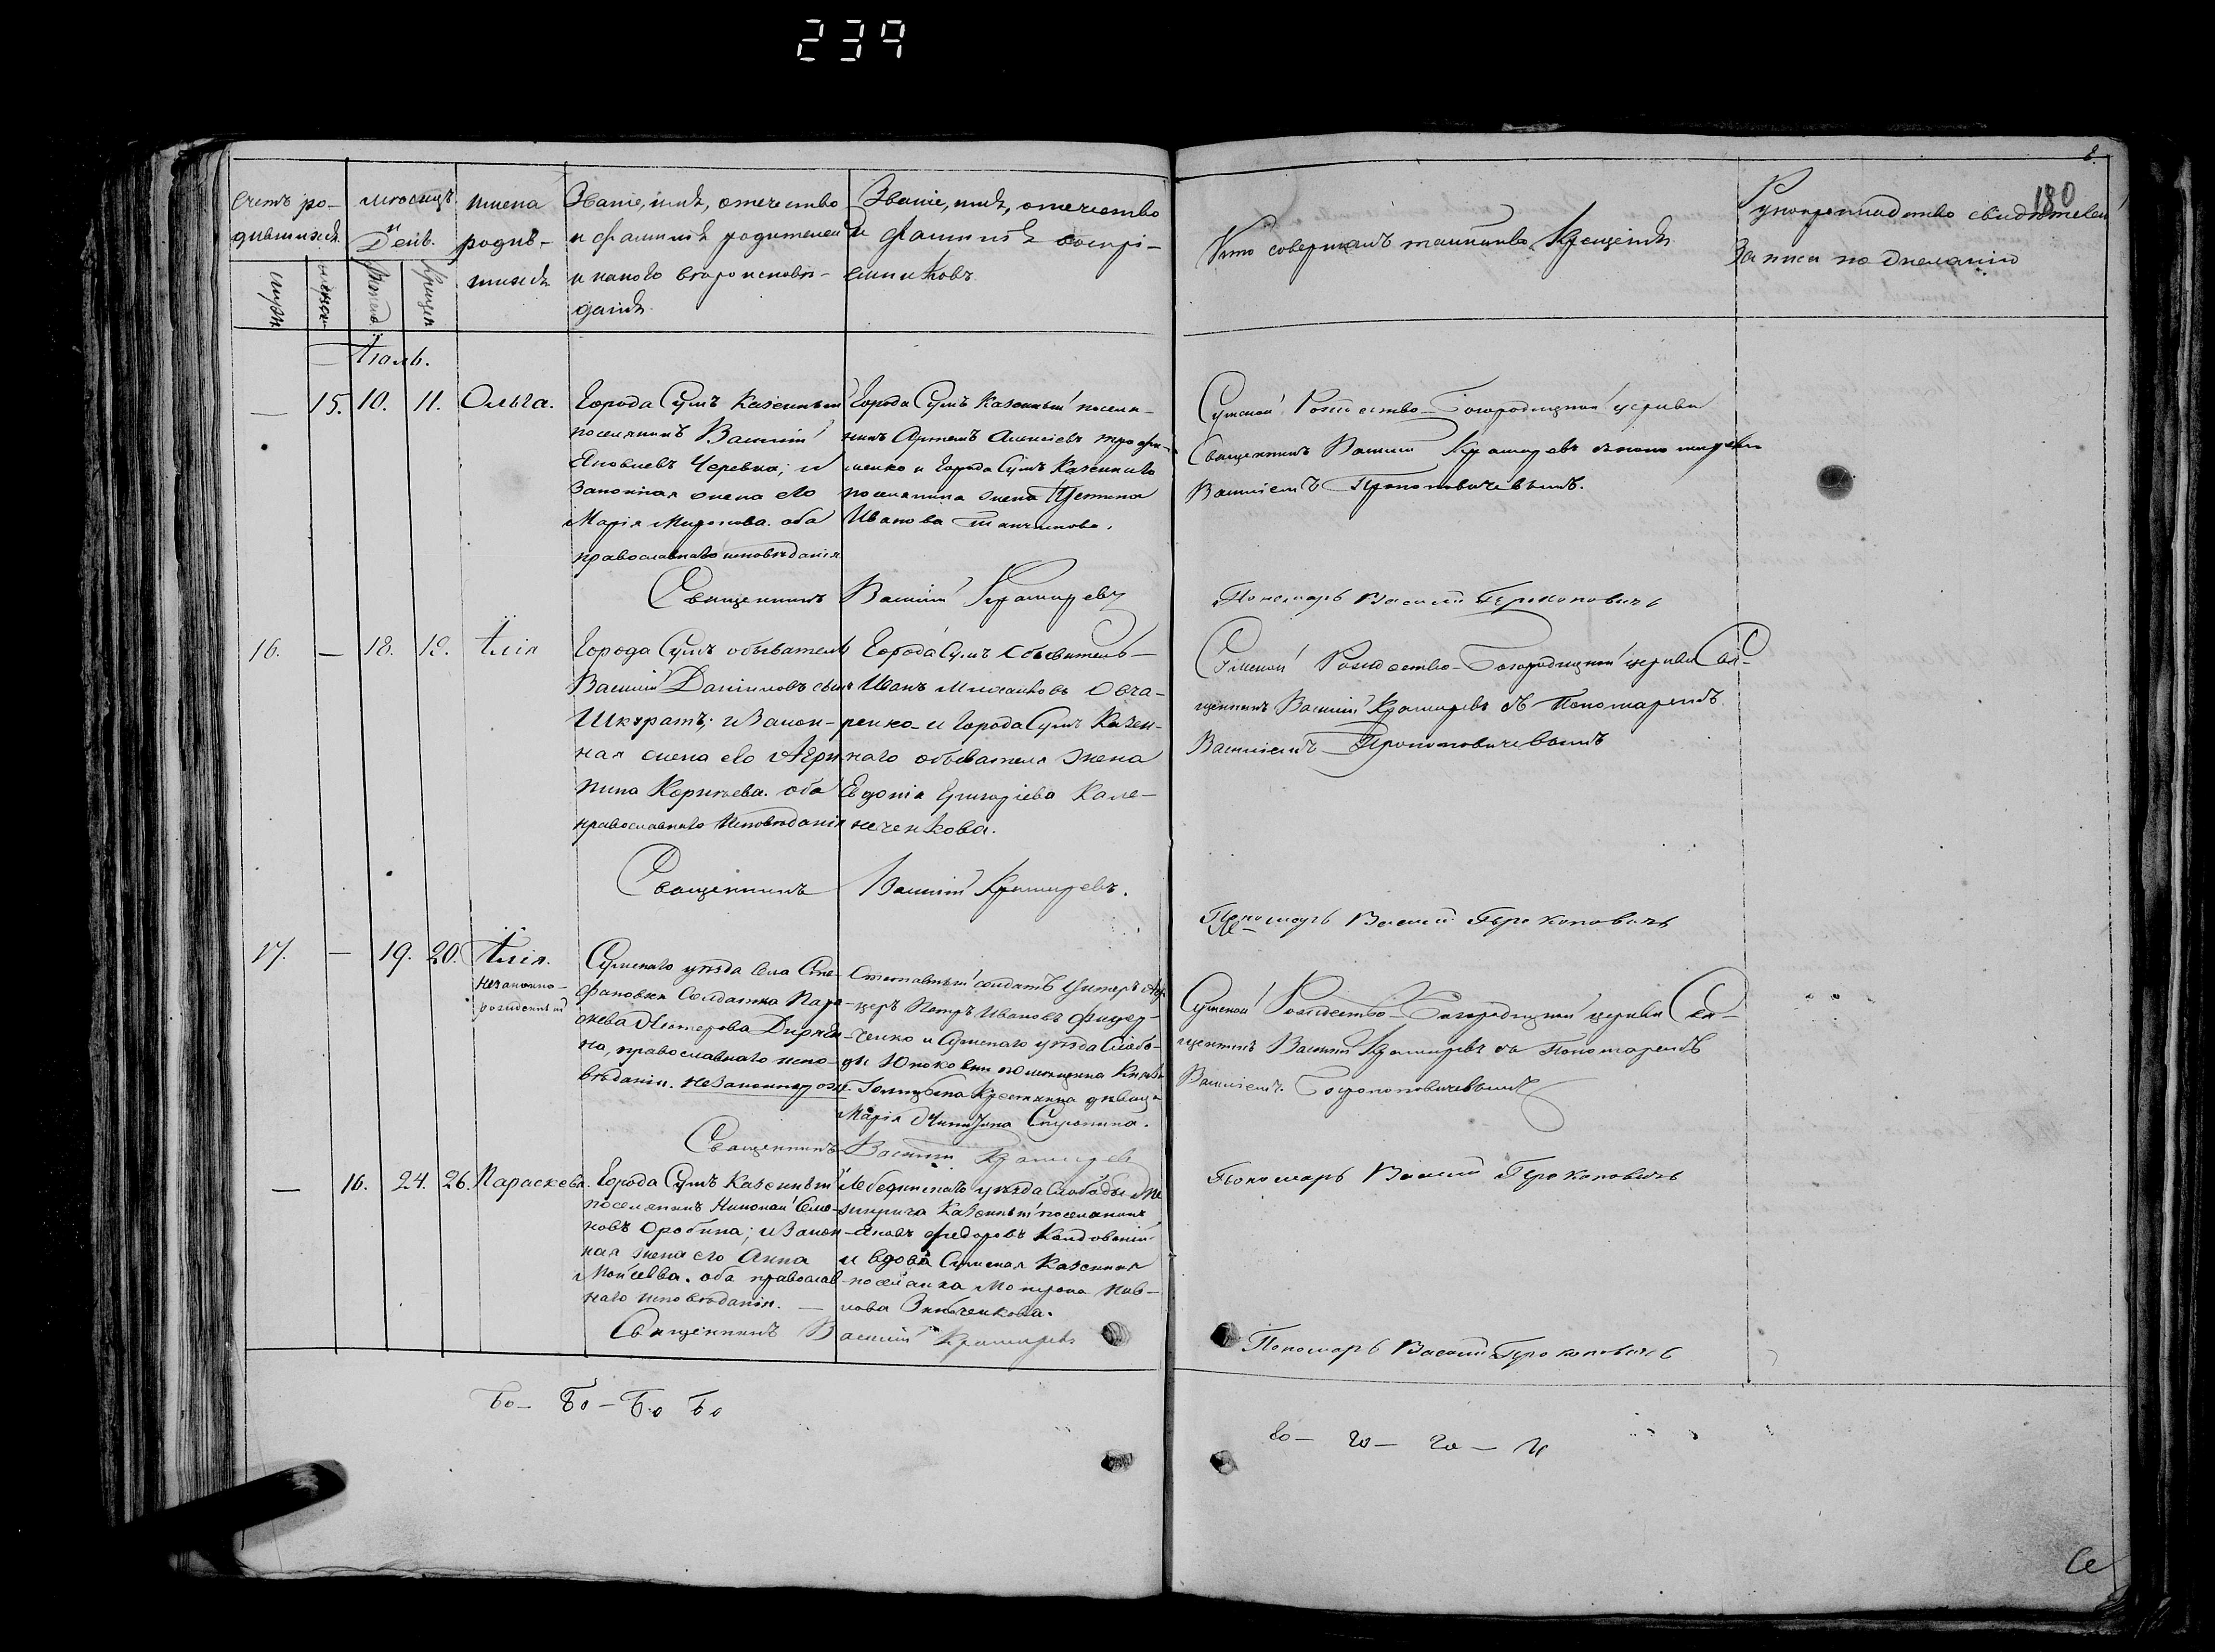 239
180
Счетъ ро-
дившихся
мѣсяцъ
и
День.
имена
родив-
шихся
Званіе, имя, отечество
и фамилія родителей
и какого вѣроисповѣ-
данія
Званіе, имя, отечество
и фамилія воспрі-
емниковъ.
Кто совершалъ таинство Крещенія
Рукоприкладство свидѣтелей
Записи по Желанію
Іюль.
— 15. 10. 11. Ольга.
Города Сумъ Казенный
поселянинъ Василій
Яковлевъ Черевка; и
Законная жена его
Марія Миронова. оба
православнаго исповѣданія
Города Сумъ Казенный посел-
нинъ Артемъ Алексѣевъ Трофи-
менко и Города Сумъ Казеннаго
поселянина жена
Иванова
Священникъ Василій Крамаревъ
Сумской Рождество-Богородицкой церкви
Священникъ Василій Крамаревъ съ пономаремъ
Василіемъ Прокоповичевымъ.
Пономарь Василій Прокоповичъ
16. — 18. 19. Илія
Города Сумъ обыватель
Василій Даніиловъ сынъ
Шкуратъ; и Закон-
ная жена его Агри-
пина Корнѣева. оба
православнаго Исповѣданія
Города Сумъ Обыватель
Иванъ Михайловъ Овча-
ренко и Города Сумъ Казен-
наго обывателя жена
Евдокія Григоріева Кале-
ниченкова.
Священникъ Василій Крамаревъ.
Сумской Рождество-Богородицкой церкви Свя-
щенникъ Василій Крамаревъ съ Пономаремъ
Василіемъ Прокоповичевымъ
Пономарь Василій Прокоповичъ
17. — 19. 20. Илія.
Незаконно-
рожденный
Сумскаго уѣзда Села Сте-
фановки Солдатка Пара-
скева
на, православнаго испо-
вѣданія. незаконнорож.
Отставный солдатъ Унтеръ Офи-
церъ Петръ Ивановъ
ченко и Сумскаго уѣзда Слобо-
ды Юнаковки помѣщика Князя
Голицына Крестьянка дѣвица
Марія
Священникъ Василій Крамаревъ
Сумской Рождество-Богородицкой церкви Свя-
щенникъ Василій Крамаревъ съ Пономаремъ
Василіемъ Прокоповичевымъ
Пономарь Василій Прокоповичъ
— 16. 24. 26. Параскева.
Города Сумъ Казенный
поселянинъ Николай Семе-
новъ Оробина; и Закон-
ная жена его Анна
Моисеева. оба православ-
наго исповѣданія. —
Лебединскаго уѣзда Слободы Ме-
жирича Казенный поселянинъ
Яковъ Федоровъ
и вдова Сумская Казенная
поселянка Мотрона Пав-
лова
Священникъ Василій Крамаревъ
Пономарь Василій Прокоповичъ